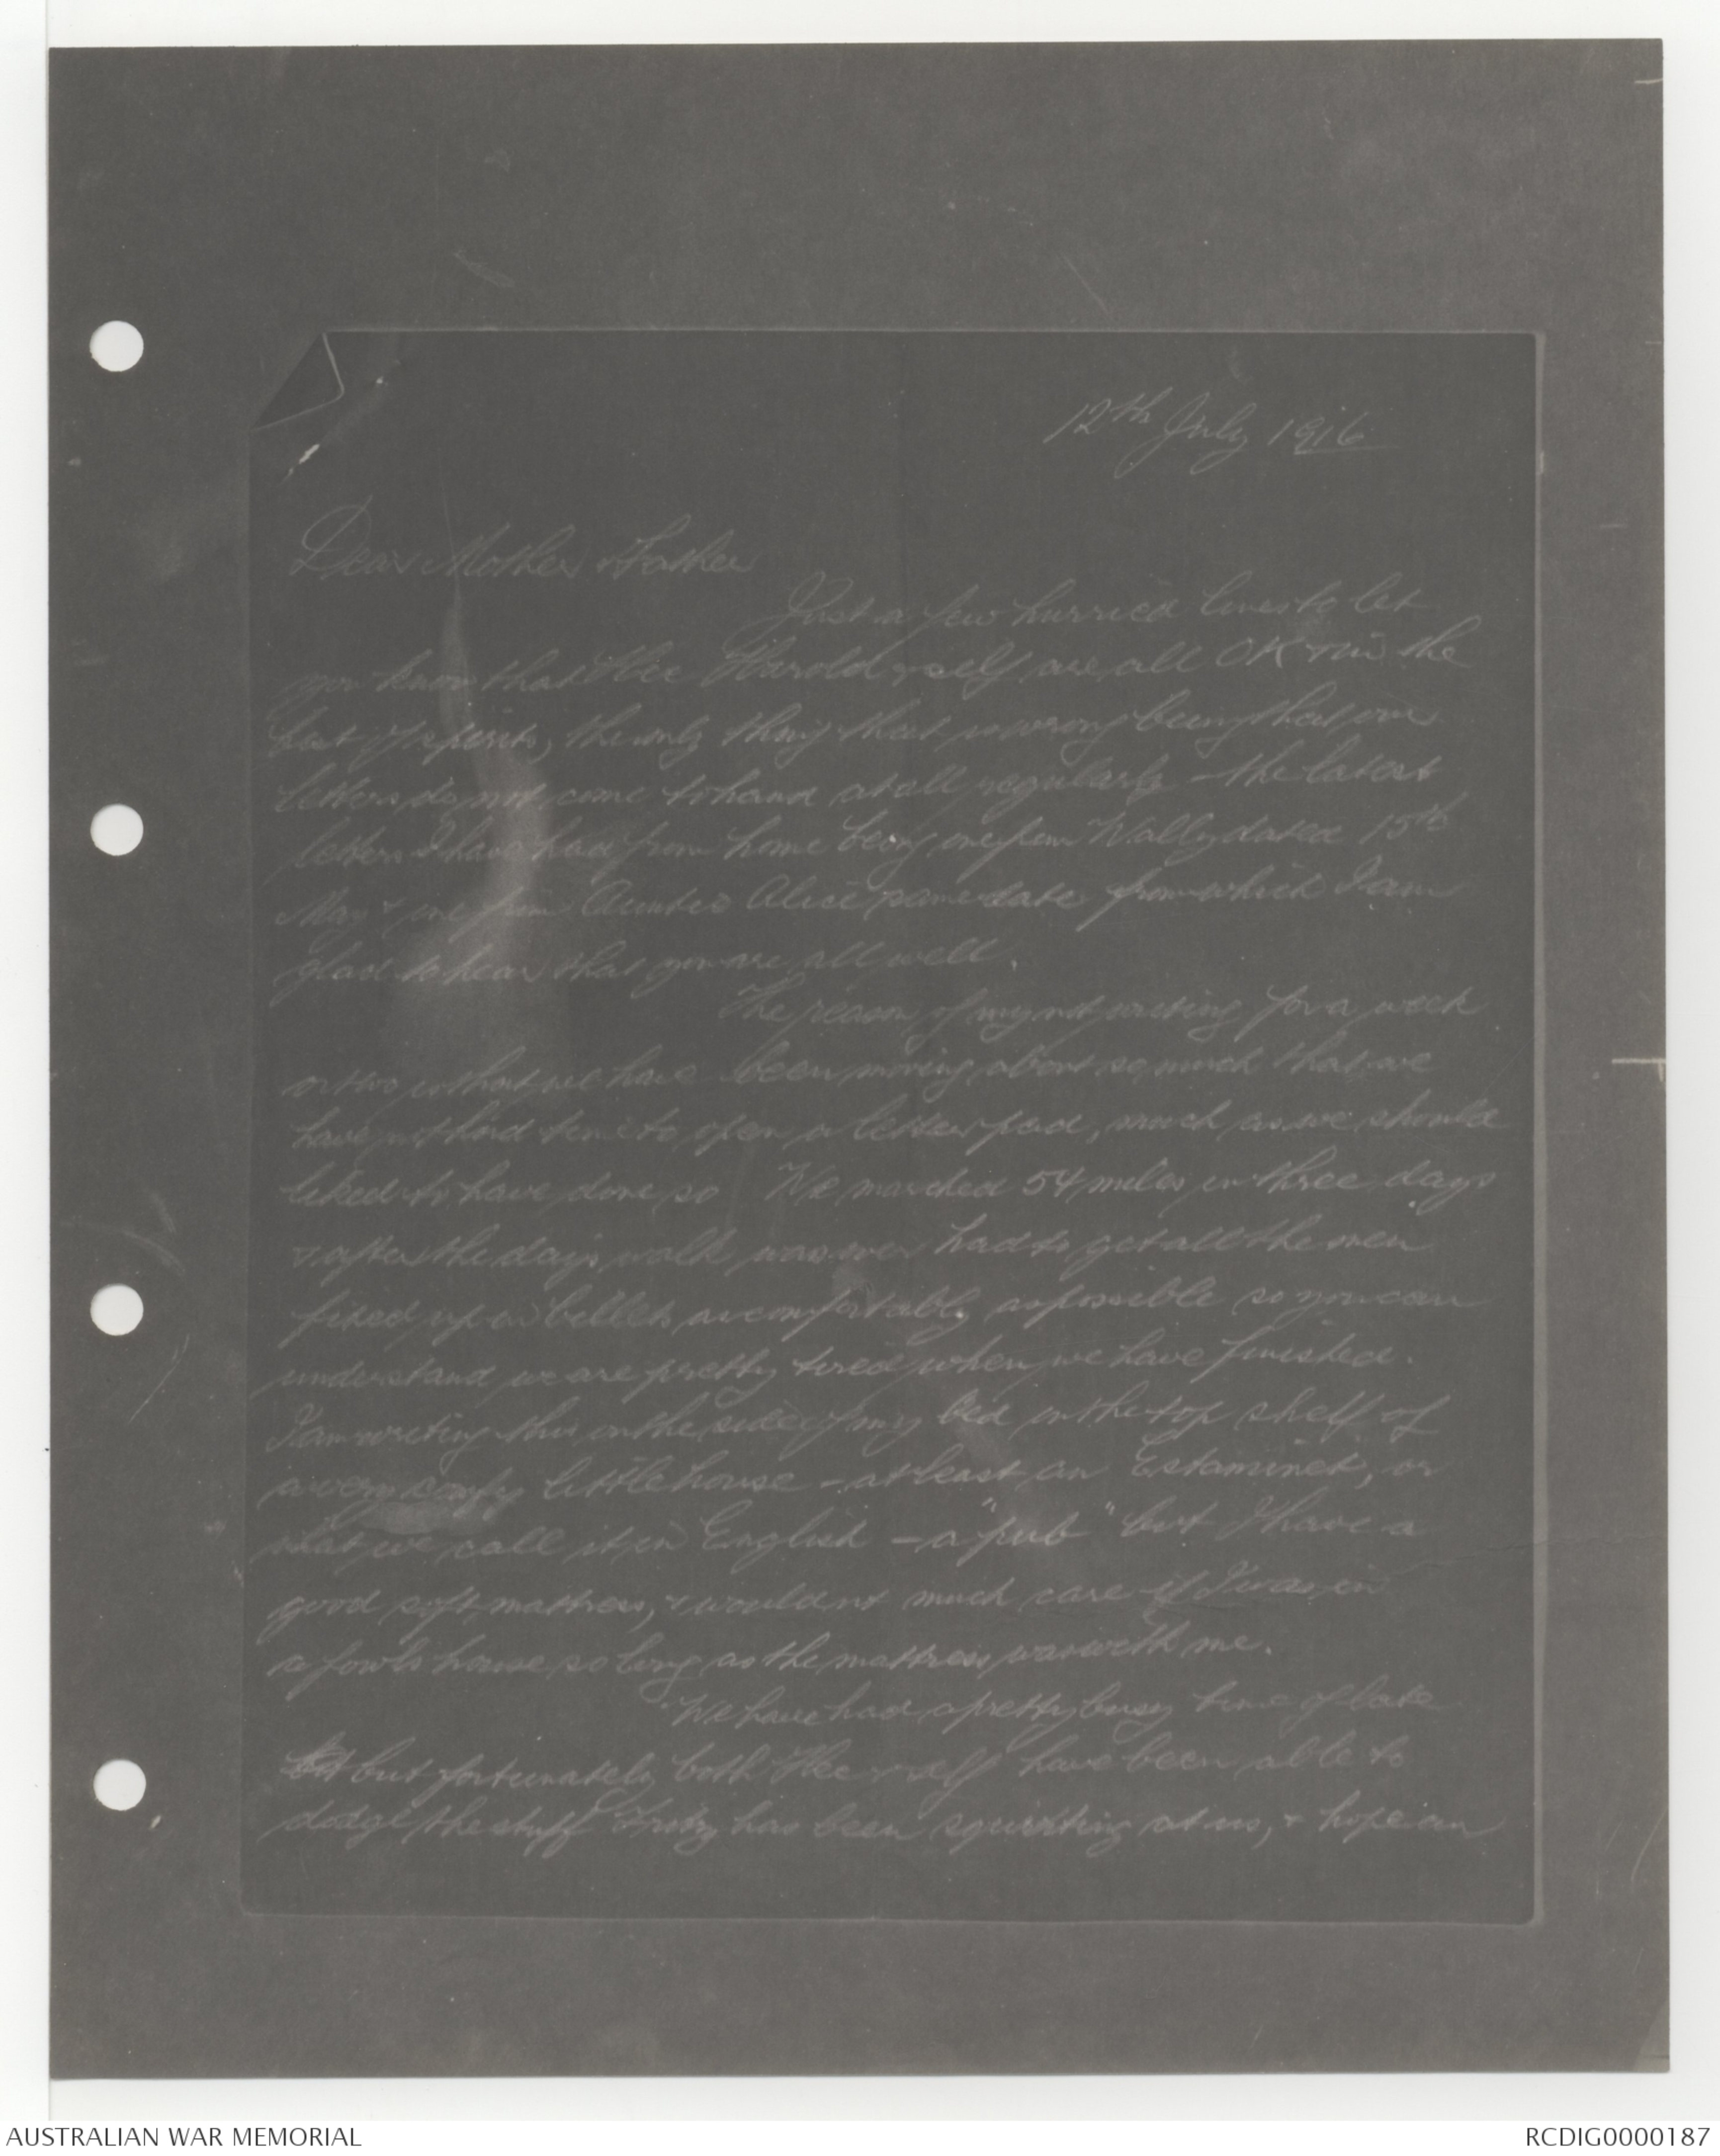 12th July 1916
Dear Mother & Father
Just a few hurried lines to let
you know that Alec Harold & self are all OK & in the
best of spirits, the only thing that is wrong being that our
letters do not come to hand at all regularly - the latest
letters I have had from home being one from Wally dated 15th
May & one from Auntie Alice same date from which I am
glad to hear that you are all well.
The reason of my not writing for a week
or two is that we have been moving about so much that we
have not had time to open a letter pad, much as we should
liked to have done so We marched 54 miles in three days
& after the day's walk was over had to get all the men
fixed up in billets as comfortably as possible so you can
understand we are pretty tired when we have finished.
I am writing this on the side of my bed in the top shelf of
a very comfy little house - at least an Estaminet, or
what we call it in English - a "pub" but I have a
good soft mattress, & wouldnt much care if I was in
a fowls house so long as the mattress was with me.
We have had a pretty busy time of late
but fortunately both Alec & self have been able to
dodge the stuff Fritz has been squirting at us, & hope can
AUSTRALIAN WAR MEMORIAL
RCDIG0000187